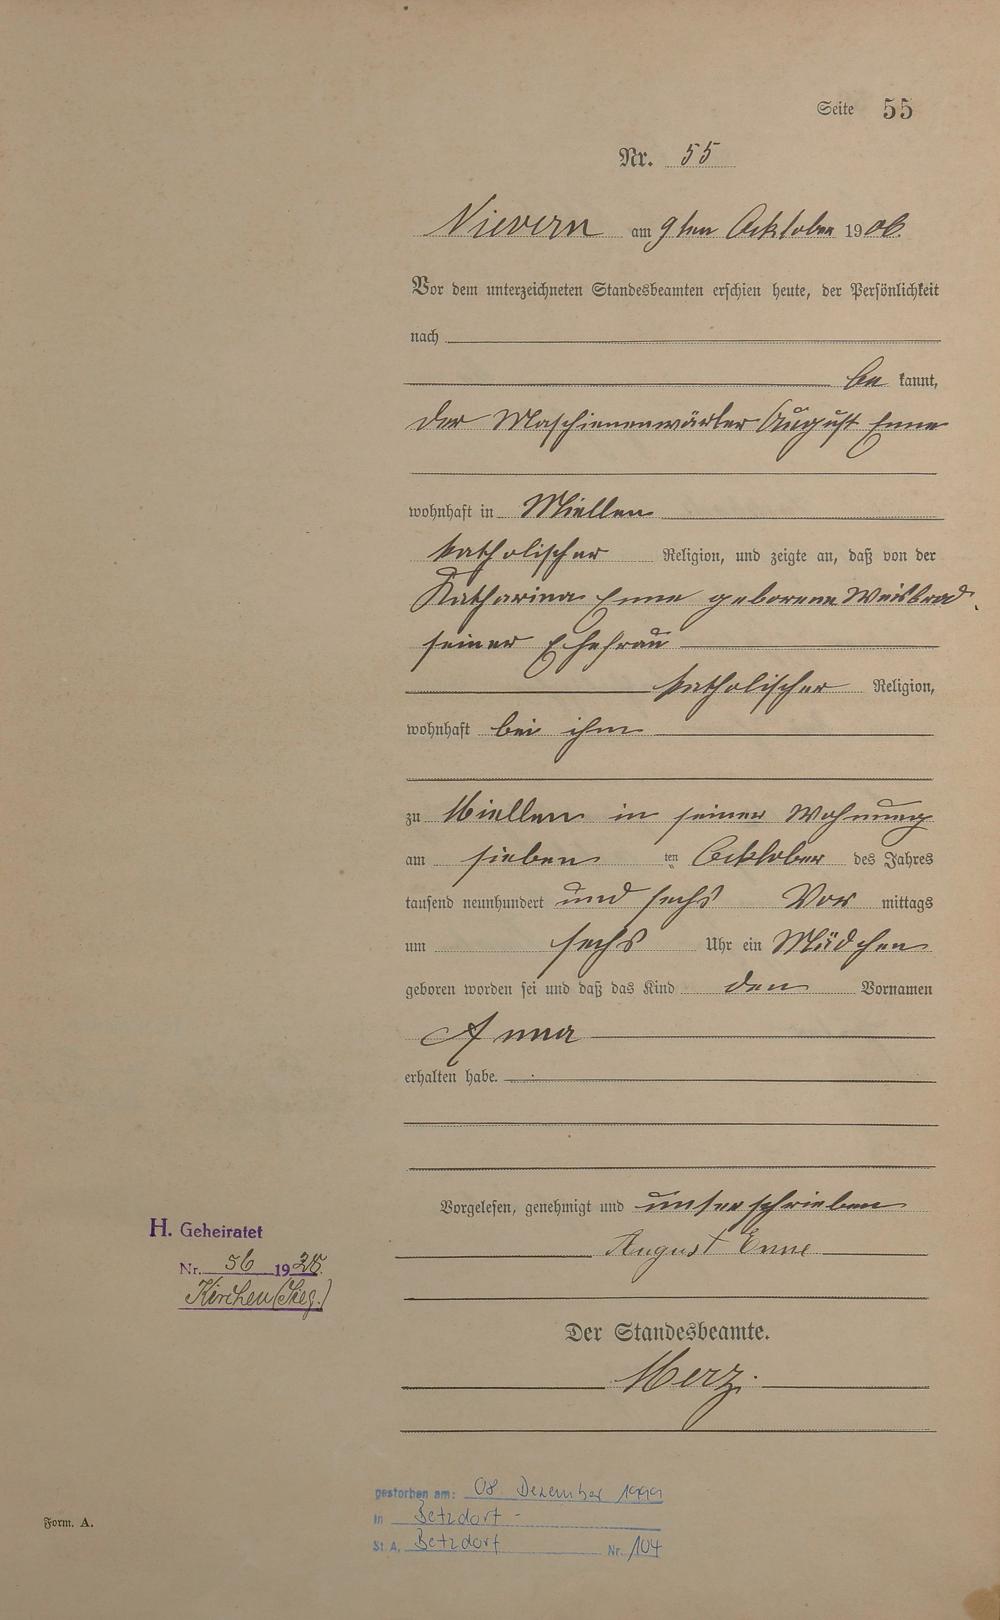 Seite 55
Nr. 55
Nievern am 9ten Ocktober 1906.
Vor dem unterzeichneten Standesbeamten erschien heute, der Persönlichkeit
nach
be kannt,
der Maschienenwärter August Enne
wohnhaft in Miellen
katholischer Religion, und zeigte an, daß von der
Katharina Enne geborene Weisbrod
seiner Ehefrau
katholischer Religion,
wohnhaft bei ihm
zu Miellen in seiner Wohnung
am sieben ten Ocktober des Jahres
tausend neunhundert und sechs Vor mittags
um sechs Uhr ein Mädchen
geboren worden sei und daß das Kind den Vornamen
Anna
erhalten habe.
Vorgelesen, genehmigt und unterschrieben
August Enne
H. Geheiratet
Nr. 56 19
Kirchen (Sieg.)
Der Standesbeamte.
Merz.
gestorben am: 08. Dezember 1999
in Betzdorf -
St.A. Betzdorf Nr. 104
Form. A.